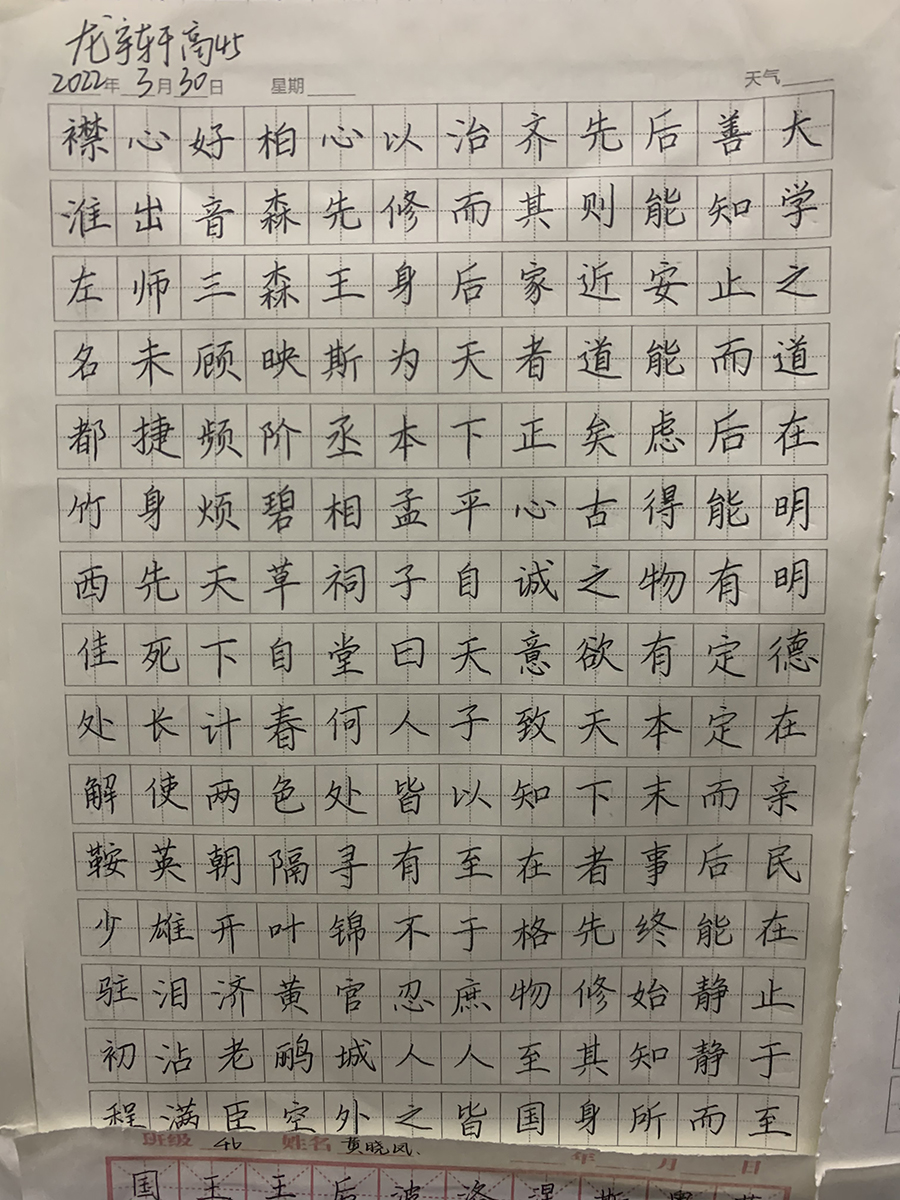 龙宇轩高45
2022年3月30日 星期 天气
大学之道在明明德在亲民在止于至
善知止而后能有定定而后能静静而
后能安能虑得物有本末事终始知所
先则近道矣古之欲天下者先修其身
齐其家者正心诚意致知在格物至国
治而后天下平自天子以至于庶人皆
以修身为本孟子曰人皆有不忍人之
心先王斯丞相祠堂何处寻锦官城外
柏森森映阶碧草自春色隔叶黄鹂空
好音三顾频烦天下计两朝开济老臣
心出师未捷身先死长使英雄泪沾满
襟淮左名都竹西佳处解鞍少驻初程
班级 46 姓名 黄晓凤 年 月 日
国王王后波洛涅斯